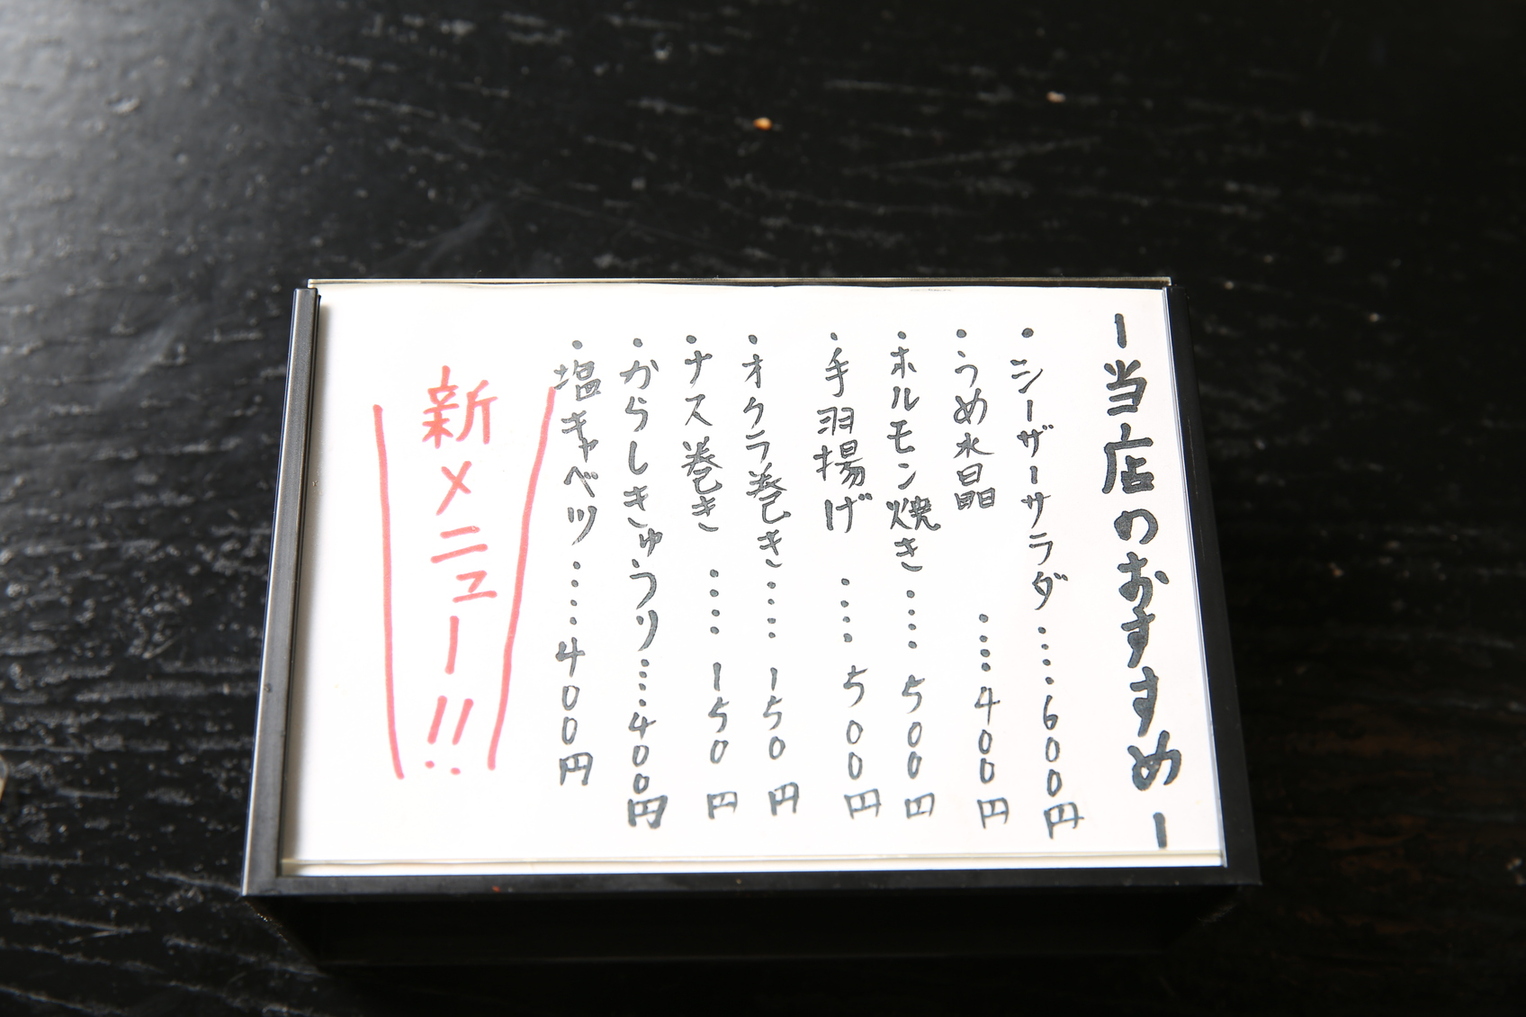 ー当店のおすすめー
・シーザーサラダ‥‥‥600円
・うめ水晶‥‥‥400円
・ホルモン焼き‥‥‥500円
・手羽揚げ‥‥‥500円
・オクラ巻き‥‥‥150円
・ナス巻き‥‥‥150円
・からしきゅうり‥‥‥400円
・塩キャベツ‥‥‥400円
新メニュー!!